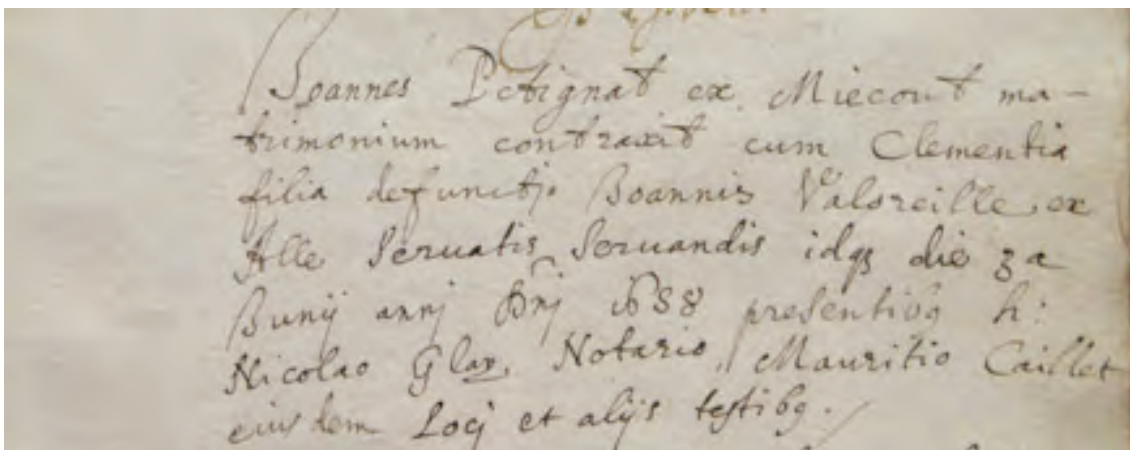 Joannes Petignat ex Miecourt ma-
trimonium contraxit cum Clementia
filia defuncti Joannis Valoreille ex
Alle servatis servandis idq3 die 3a
Junij annj Dnj 1688 presentibq h:
Nicolao Glav. Notario, Mauritio Caillet
eiusdem Locj et alijs testibq.